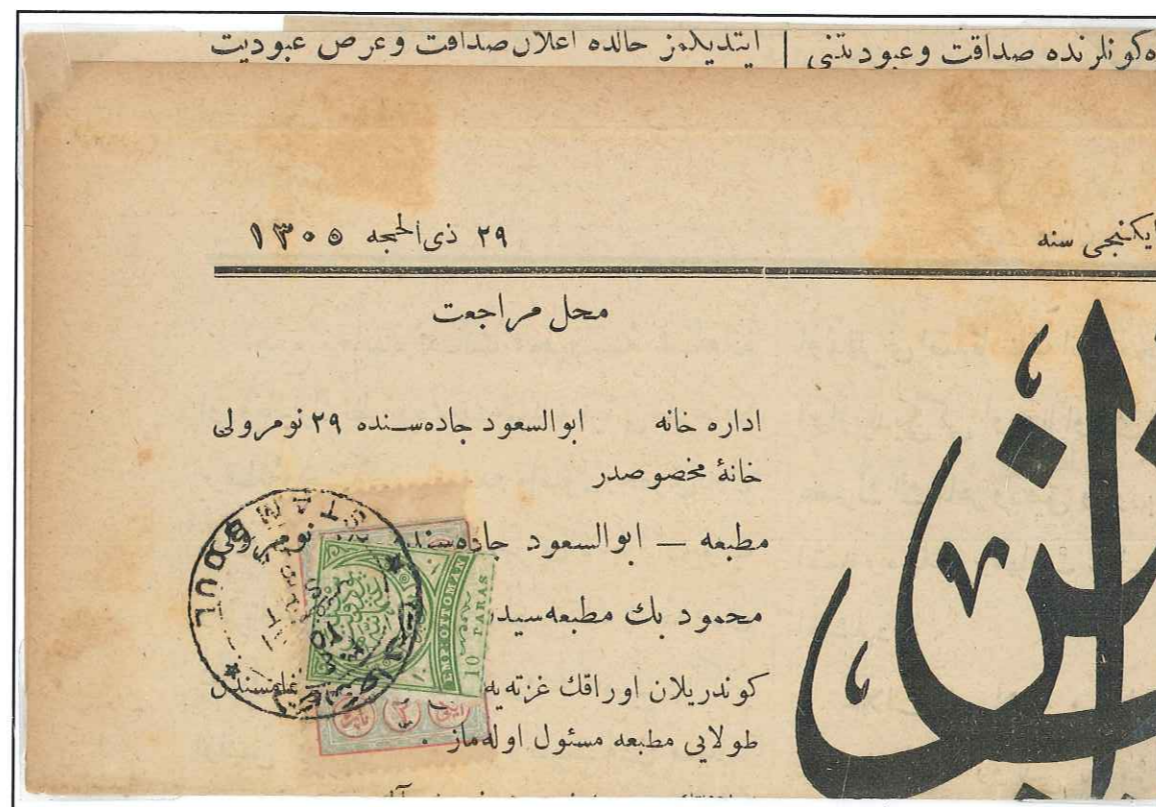 ه‌كونلرنده صداقت وعبوديتنى | ايتديلكمز حالده اعلان صداقت وعرض عبوديت
ايكنجى سنه
٢٩ ذى الحجه ١٣٠٥
محل مراجعت
اداره خانه ابوالسعود جاده‌سنده ٢٩ نومرولى
خانهٔ مخصوصدر
مطبعه — ابوالسعود جاده‌سنده نومرولى
محمود بك مطبعه‌سيدر
كوندريلان اوراقك غزته‌يه
طولايى مطبعه مسئول اوله‌ماز .
STAMBOUL
EMP: OTTOMAN
10 PARAS
ايكى ٢ پاره